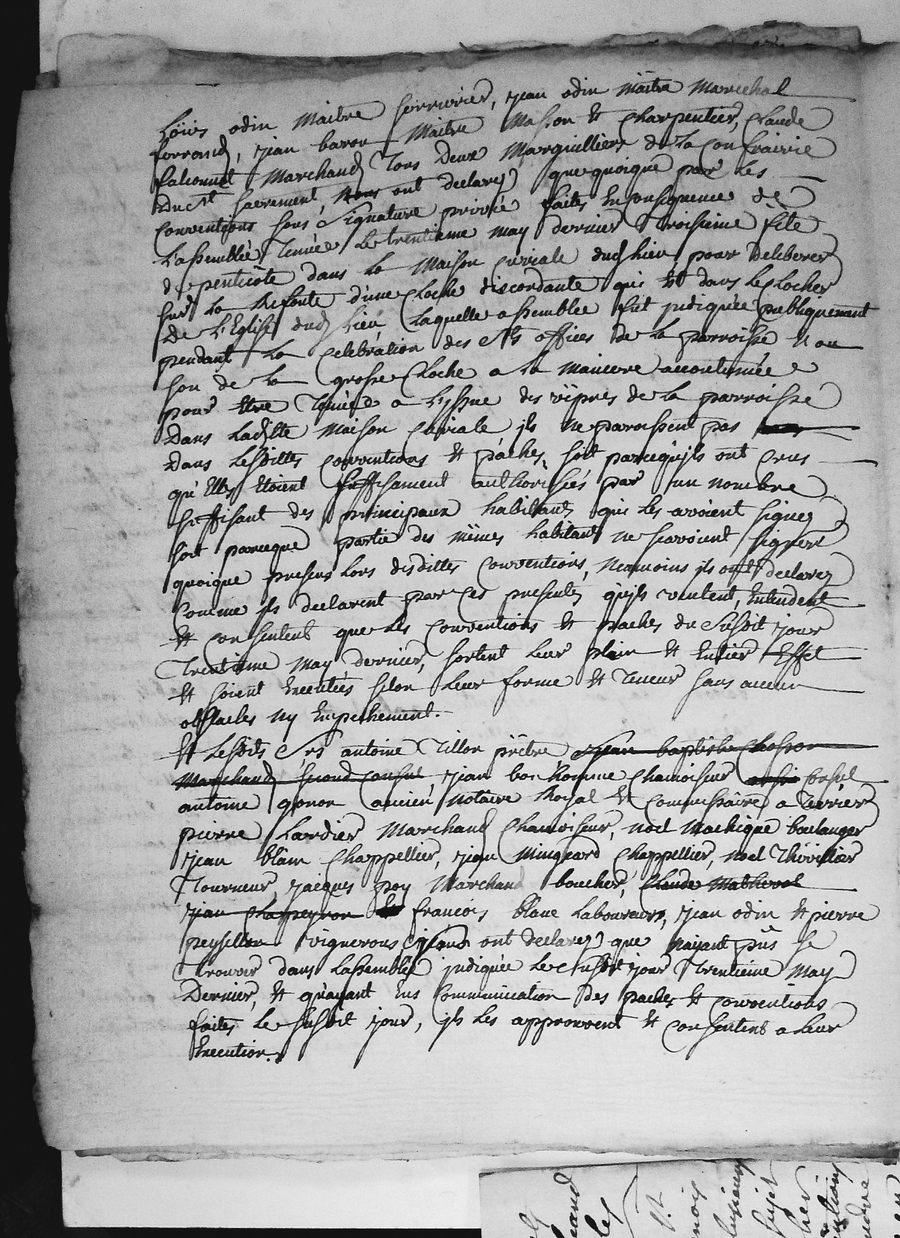 Loüis odin Maitre serrurier, jean odin Maitre Marechal
ferrand, jean baron Maitre Masson et Charpentier, Claude
falconnet Marchand tous deux Marguilliers de la Confrairie
du st sacrement, ont declarez que quoique par les
Conventions sous signature privée faites En Consequence de
L'assemblée tenüe Le trentieme may dernier troisieme fête
de pentecôte dans la Maison curiale dud lieu pour Deliberer
sur la Refonte d'une Cloche discordante qui Est dans le Clocher
De L'Eglise dud lieu Laquelle assemblée fut indiquée publiquement
pendant la Celebration des sts offices de la parroisse et au
son de la grosse Cloche a la maniere accoutumée
pour Etre tenüe a L'issue des vêpres de la parroisse
Dans Laditte Maison Curiale ils ne paroissent pas
Dans Lesdittes conventions et paches, soit parcequ'ils ont crus
qu'Elles Etoient suffisament authorisées par un nombre
suffisant des principaux habitants qui les avoient signez
soit parceque partie des mêmes habitants ne scavoient signer
quoique presens Lors desdittes Conventions, Neamoins ils ont declarez
Comme ils declarent par ces presentes qu'ils veulent, Entendent
Et Consentent que les Conventions et paches du susdit jour
trentieme may dernier, sortent leur plein et Entier Effet
et soient Executées selon leur forme et teneur sans aucun
obstacles ny Empechement.
Et Lesdits srs antoine tillon prêtre jean baptiste Chosson
Marchand second Consul jean bonhomme Chamoiseur
antoine gonon ancien Notaire Royal et Commissaire a terrier
pierre Lardier Marchand Chamoiseur, noel boulanger
jean blain Chappellier, jean Chappellier, noel
tourneur, jacques pey Marchand boucher, Claude Matheval
jean Chapeyron francois blanc Laboureurs, jean odin et pierre
vignerons ont declarez que nayant pûs se
trouver dans Lassemblée indiquée le susdit jour trentieme May
Dernier, et qu'ayant Eus Communication des paches et Conventions
faites le susdit jour, ils les approuvent et Consentent a leur
Execution.